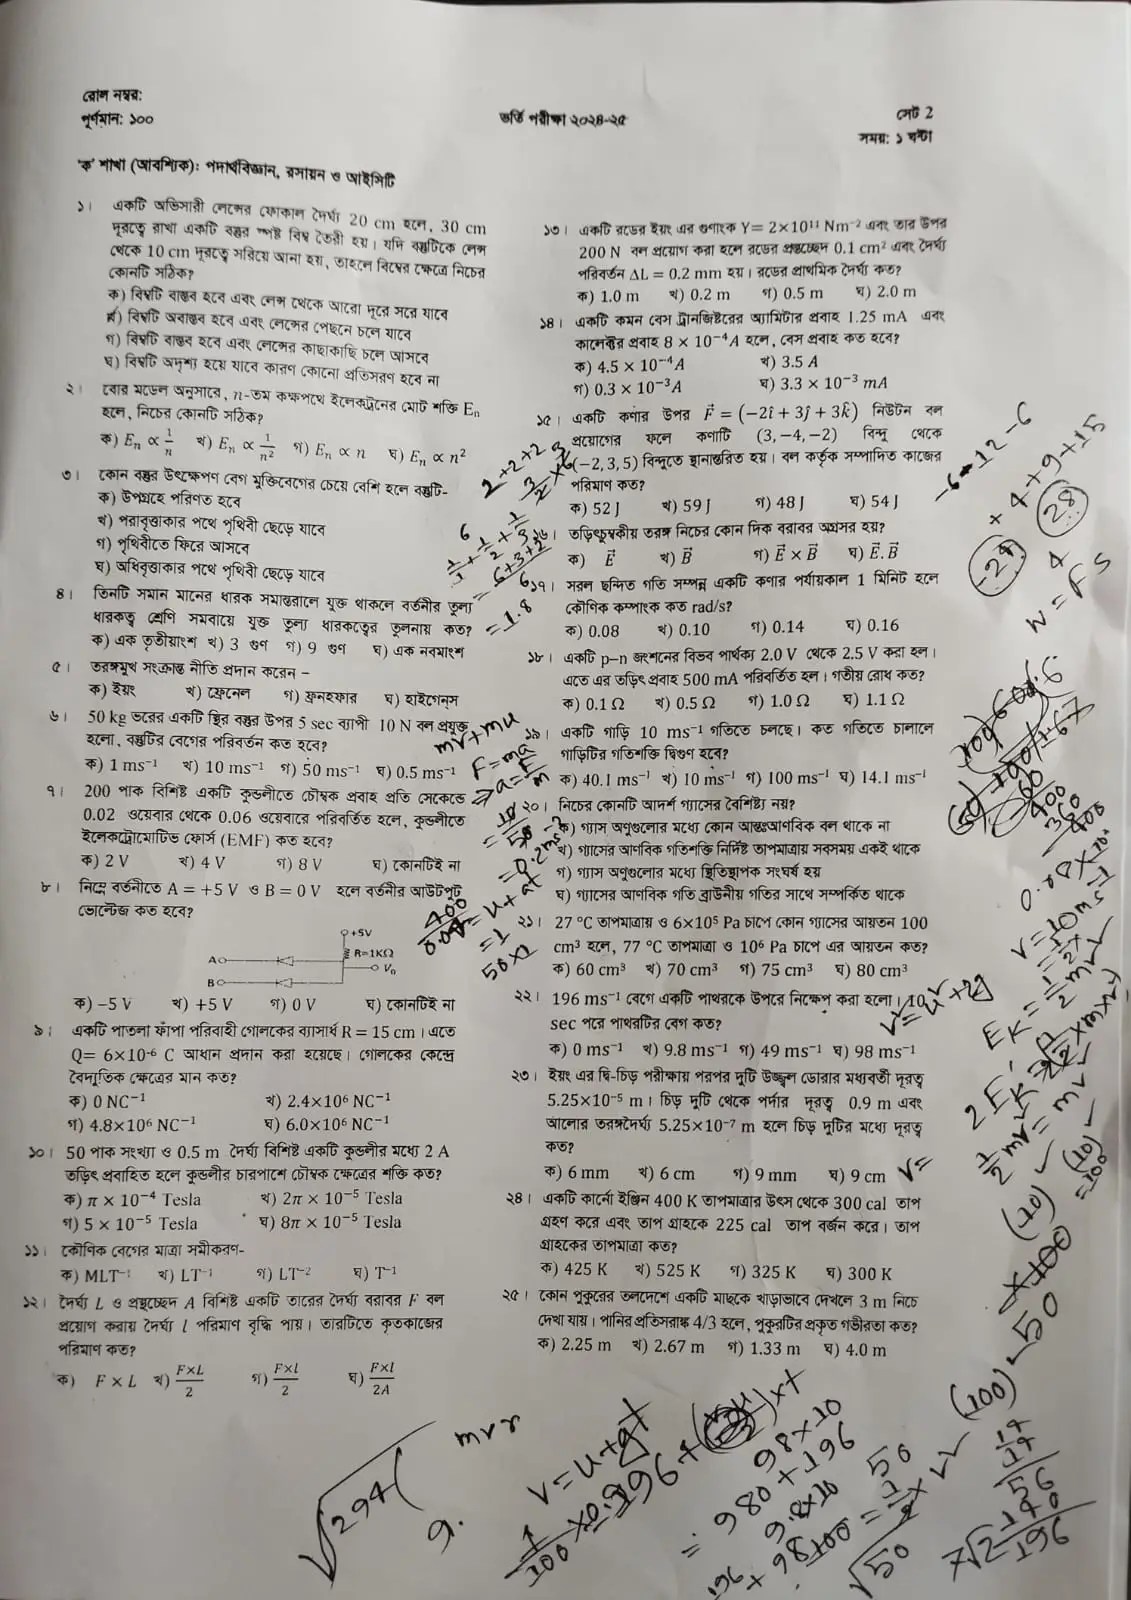 রোল নম্বর:
পূর্ণমান: ১০০
ভর্তি পরীক্ষা ২০২৪-২৫
সেট 2
সময়: ১ ঘন্টা
'ক' শাখা (আবশ্যিক): পদার্থবিজ্ঞান, রসায়ন ও আইসিটি
১। একটি অভিসারী লেন্সের ফোকাল দৈর্ঘ্য 20 cm হলে, 30 cm
দূরত্বে রাখা একটি বস্তুর স্পষ্ট বিম্ব তৈরী হয়। যদি বস্তুটিকে লেন্স
থেকে 10 cm দূরত্বে সরিয়ে আনা হয়, তাহলে বিম্বের ক্ষেত্রে নিচের
কোনটি সঠিক?
ক) বিম্বটি বাস্তব হবে এবং লেন্স থেকে আরো দূরে সরে যাবে
খ) বিম্বটি অবাস্তব হবে এবং লেন্সের পেছনে চলে যাবে
গ) বিম্বটি বাস্তব হবে এবং লেন্সের কাছাকাছি চলে আসবে
ঘ) বিম্বটি অদৃশ্য হয়ে যাবে কারণ কোনো প্রতিসরণ হবে না
২। বোর মডেল অনুসারে, n-তম কক্ষপথে ইলেকট্রনের মোট শক্তি Eₙ
হলে, নিচের কোনটি সঠিক?
ক) Eₙ ∝ 1/n খ) Eₙ ∝ 1/n² গ) Eₙ ∝ n ঘ) Eₙ ∝ n²
৩। কোন বস্তুর উৎক্ষেপণ বেগ মুক্তিবেগের চেয়ে বেশি হলে বস্তুটি-
ক) উপগ্রহে পরিণত হবে
খ) পরাবৃত্তাকার পথে পৃথিবী ছেড়ে যাবে
গ) পৃথিবীতে ফিরে আসবে
ঘ) অধিবৃত্তাকার পথে পৃথিবী ছেড়ে যাবে
৪। তিনটি সমান মানের ধারক সমান্তরালে যুক্ত থাকলে বর্তনীর তুল্য
ধারকত্ব শ্রেণি সমবায়ে যুক্ত তুল্য ধারকত্বের তুলনায় কত?
ক) এক তৃতীয়াংশ খ) 3 গুণ গ) 9 গুণ ঘ) এক নবমাংশ
৫। তরঙ্গমুখ সংক্রান্ত নীতি প্রদান করেন –
ক) ইয়ং খ) ফ্রেনেল গ) ফ্রনহফার ঘ) হাইগেনস
৬। 50 kg ভরের একটি স্থির বস্তুর উপর 5 sec ব্যাপী 10 N বল প্রযুক্ত
হলো, বস্তুটির বেগের পরিবর্তন কত হবে?
ক) 1 ms⁻¹ খ) 10 ms⁻¹ গ) 50 ms⁻¹ ঘ) 0.5 ms⁻¹
৭। 200 পাক বিশিষ্ট একটি কুন্ডলীতে চৌম্বক প্রবাহ প্রতি সেকেন্ডে
0.02 ওয়েবার থেকে 0.06 ওয়েবারে পরিবর্তিত হলে, কুন্ডলীতে
ইলেকট্রোমোটিভ ফোর্স (EMF) কত হবে?
ক) 2 V খ) 4 V গ) 8 V ঘ) কোনটিই না
৮। নিম্নে বর্তনীতে A = +5 V ও B = 0 V হলে বর্তনীর আউটপুট
ভোল্টেজ কত হবে?
+5V
R=1KΩ
A
V₀
B
ক) –5 V খ) +5 V গ) 0 V ঘ) কোনটিই না
৯। একটি পাতলা ফাঁপা পরিবাহী গোলকের ব্যাসার্ধ R = 15 cm। এতে
Q= 6×10⁻⁶ C আধান প্রদান করা হয়েছে। গোলকের কেন্দ্রে
বৈদ্যুতিক ক্ষেত্রের মান কত?
ক) 0 NC⁻¹ খ) 2.4×10⁶ NC⁻¹
গ) 4.8×10⁶ NC⁻¹ ঘ) 6.0×10⁶ NC⁻¹
১০। 50 পাক সংখ্যা ও 0.5 m দৈর্ঘ্য বিশিষ্ট একটি কুন্ডলীর মধ্যে 2 A
তড়িৎ প্রবাহিত হলে কুন্ডলীর চারপাশে চৌম্বক ক্ষেত্রের শক্তি কত?
ক) π × 10⁻⁴ Tesla খ) 2π × 10⁻⁵ Tesla
গ) 5 × 10⁻⁵ Tesla ঘ) 8π × 10⁻⁵ Tesla
১১। কৌণিক বেগের মাত্রা সমীকরণ-
ক) MLT⁻¹ খ) LT⁻¹ গ) LT⁻² ঘ) T⁻¹
১২। দৈর্ঘ্য L ও প্রস্থচ্ছেদ A বিশিষ্ট একটি তারের দৈর্ঘ্য বরাবর F বল
প্রয়োগ করায় দৈর্ঘ্য l পরিমাণ বৃদ্ধি পায়। তারটিতে কৃতকাজের
পরিমাণ কত?
ক) F × L খ) F×L/2 গ) F×l/2 ঘ) F×l/2A
১৩। একটি রডের ইয়ং এর গুণাংক Y= 2×10¹¹ Nm⁻² এবং তার উপর
200 N বল প্রয়োগ করা হলে রডের প্রস্থচ্ছেদ 0.1 cm² এবং দৈর্ঘ্য
পরিবর্তন ΔL = 0.2 mm হয়। রডের প্রাথমিক দৈর্ঘ্য কত?
ক) 1.0 m খ) 0.2 m গ) 0.5 m ঘ) 2.0 m
১৪। একটি কমন বেস ট্রানজিস্টরের অ্যামিটার প্রবাহ 1.25 mA এবং
কালেক্টর প্রবাহ 8 × 10⁻⁴A হলে, বেস প্রবাহ কত হবে?
ক) 4.5 × 10⁻⁴A খ) 3.5 A
গ) 0.3 × 10⁻³A ঘ) 3.3 × 10⁻³ mA
১৫। একটি কণার উপর F⃗ = (−2î + 3ĵ + 3k̂) নিউটন বল
প্রয়োগের ফলে কণাটি (3, −4, −2) বিন্দু থেকে
(−2, 3, 5) বিন্দুতে স্থানান্তরিত হয়। বল কর্তৃক সম্পাদিত কাজের
পরিমাণ কত?
ক) 52 J খ) 59 J গ) 48 J ঘ) 54 J
১৬। তড়িৎচুম্বকীয় তরঙ্গ নিচের কোন দিক বরাবর অগ্রসর হয়?
ক) E⃗ খ) B⃗ গ) E⃗ × B⃗ ঘ) E⃗. B⃗
১৭। সরল ছন্দিত গতি সম্পন্ন একটি কণার পর্যায়কাল 1 মিনিট হলে
কৌণিক কম্পাংক কত rad/s?
ক) 0.08 খ) 0.10 গ) 0.14 ঘ) 0.16
১৮। একটি p–n জংশনের বিভব পার্থক্য 2.0 V থেকে 2.5 V করা হল।
এতে এর তড়িৎ প্রবাহ 500 mA পরিবর্তিত হল। গতীয় রোধ কত?
ক) 0.1 Ω খ) 0.5 Ω গ) 1.0 Ω ঘ) 1.1 Ω
১৯। একটি গাড়ি 10 ms⁻¹ গতিতে চলছে। কত গতিতে চালালে
গাড়িটির গতিশক্তি দ্বিগুণ হবে?
ক) 40.1 ms⁻¹ খ) 10 ms⁻¹ গ) 100 ms⁻¹ ঘ) 14.1 ms⁻¹
২০। নিচের কোনটি আদর্শ গ্যাসের বৈশিষ্ট্য নয়?
ক) গ্যাস অণুগুলোর মধ্যে কোন আন্তঃআণবিক বল থাকে না
খ) গ্যাসের আণবিক গতিশক্তি নির্দিষ্ট তাপমাত্রায় সবসময় একই থাকে
গ) গ্যাস অণুগুলোর মধ্যে স্থিতিস্থাপক সংঘর্ষ হয়
ঘ) গ্যাসের আণবিক গতি ব্রাউনীয় গতির সাথে সম্পর্কিত থাকে
২১। 27 °C তাপমাত্রায় ও 6×10⁵ Pa চাপে কোন গ্যাসের আয়তন 100
cm³ হলে, 77 °C তাপমাত্রা ও 10⁶ Pa চাপে এর আয়তন কত?
ক) 60 cm³ খ) 70 cm³ গ) 75 cm³ ঘ) 80 cm³
২২। 196 ms⁻¹ বেগে একটি পাথরকে উপরে নিক্ষেপ করা হলো। 10
sec পরে পাথরটির বেগ কত?
ক) 0 ms⁻¹ খ) 9.8 ms⁻¹ গ) 49 ms⁻¹ ঘ) 98 ms⁻¹
২৩। ইয়ং এর দ্বি-চিড় পরীক্ষায় পরপর দুটি উজ্জ্বল ডোরার মধ্যবর্তী দূরত্ব
5.25×10⁻⁵ m। চিড় দুটি থেকে পর্দার দূরত্ব 0.9 m এবং
আলোর তরঙ্গদৈর্ঘ্য 5.25×10⁻⁷ m হলে চিড় দুটির মধ্যে দূরত্ব
কত?
ক) 6 mm খ) 6 cm গ) 9 mm ঘ) 9 cm
২৪। একটি কার্নো ইঞ্জিন 400 K তাপমাত্রার উৎস থেকে 300 cal তাপ
গ্রহণ করে এবং তাপ গ্রাহকে 225 cal তাপ বর্জন করে। তাপ
গ্রাহকের তাপমাত্রা কত?
ক) 425 K খ) 525 K গ) 325 K ঘ) 300 K
২৫। কোন পুকুরের তলদেশে একটি মাছকে খাড়াভাবে দেখলে 3 m নিচে
দেখা যায়। পানির প্রতিসরাঙ্ক 4/3 হলে, পুকুরটির প্রকৃত গভীরতা কত?
ক) 2.25 m খ) 2.67 m গ) 1.33 m ঘ) 4.0 m
2+2+2
= 1.8
mv+mu
F=ma
= 0.2ms⁻²
v = u+at
= 1
28
W = FS
V = 10ms⁻¹
V = u+gt